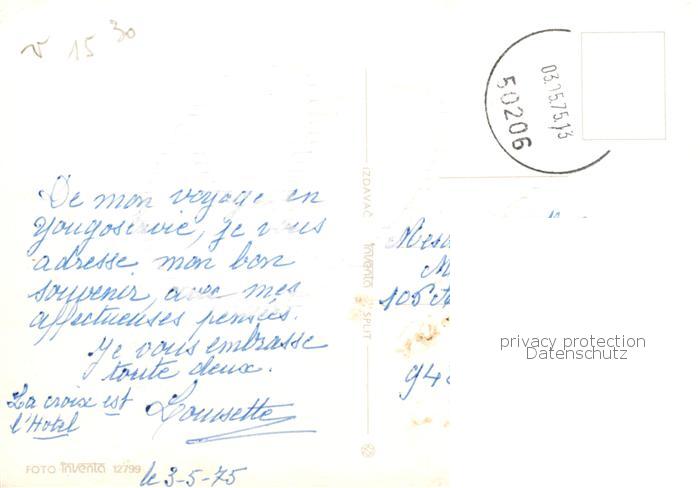 v 15 30
03.05.75.13
50206
De mon voyage en
Yougoslavie, je vous
adresse mon bon
souvenir, avec mes
affectueuses pensées.
Je vous embrasse
toute deux.
La croix est
l'Hotel
Lousette
le 3-5-75
FOTO inventa 12799
IZDAVAČ inventa SPLIT
Mes
M
105
94
privacy protection
Datenschutz